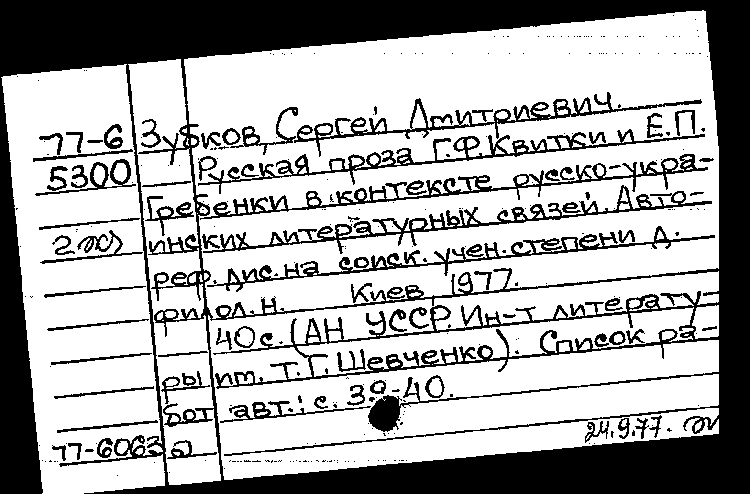 77-6 Зубков, Сергей Дмитриевич.
5300 Русская проза Г.Ф.Квитки и Е.П.
Гребенки в контексте русско-укра-
инских литературных связей. Авто-
реф. дис. на соиск. учен. степени д.
филол. н. Киев, 1977.
40 с. (АН УССР. Ин-т литерату-
ры им. Т.Г.Шевченко). Список ра-
бот авт.: с. 39-40.
77-6063
24.9.77.